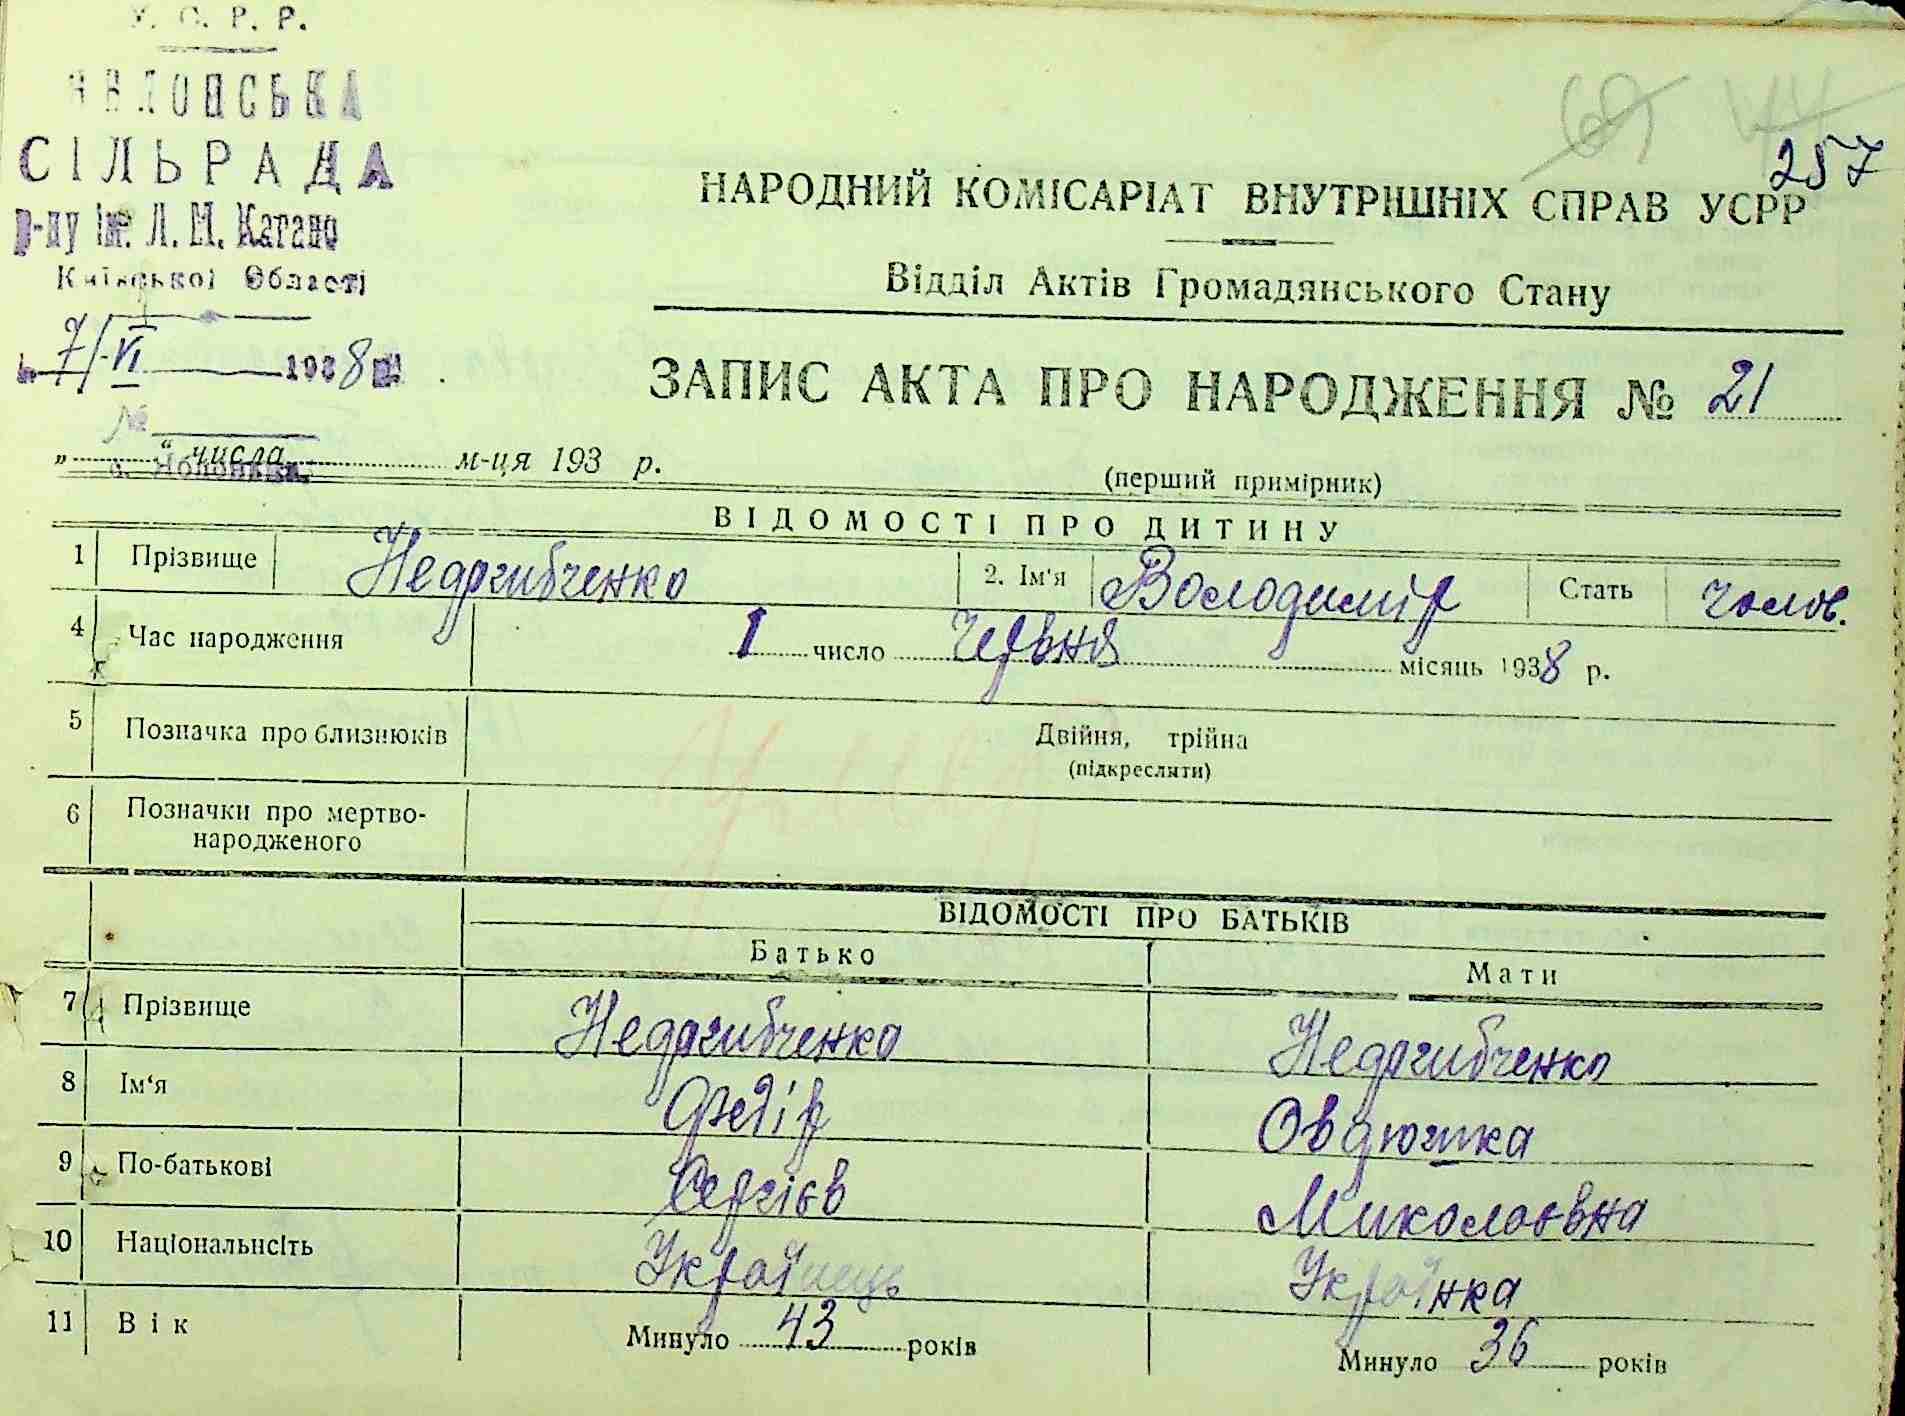 У. С. Р. Р.
СІЛЬРАДА
р-ну ім. Л. М. Кагано
Київської Області
7/VI 1938 р.
№
с. Яблонівка
69 44
257
НАРОДНИЙ КОМІСАРІАТ ВНУТРІШНІХ СПРАВ УСРР
Відділ Актів Громадянського Стану
ЗАПИС АКТА ПРО НАРОДЖЕННЯ № 21
„ “ числа м-ця 193 р.
(перший примірник)
ВІДОМОСТІ ПРО ДИТИНУ
1 Прізвище Недогибченко 2. Ім'я Володимір Стать чолов.
4 Час народження 1 число Червня місяць 1938 р.
5 Позначка про близнюків Двійня, трійна
(підкреслити)
6 Позначки про мертво-
народженого
ВІДОМОСТІ ПРО БАТЬКІВ
Батько Мати
7 Прізвище Недогибченко Недогибченко
8 Ім'я Федір Овдюшка
9 По-батькові Сергієв Миколаєвна
10 Національнсіть Українець Українка
11 Вік Минуло 43 років Минуло 36 років